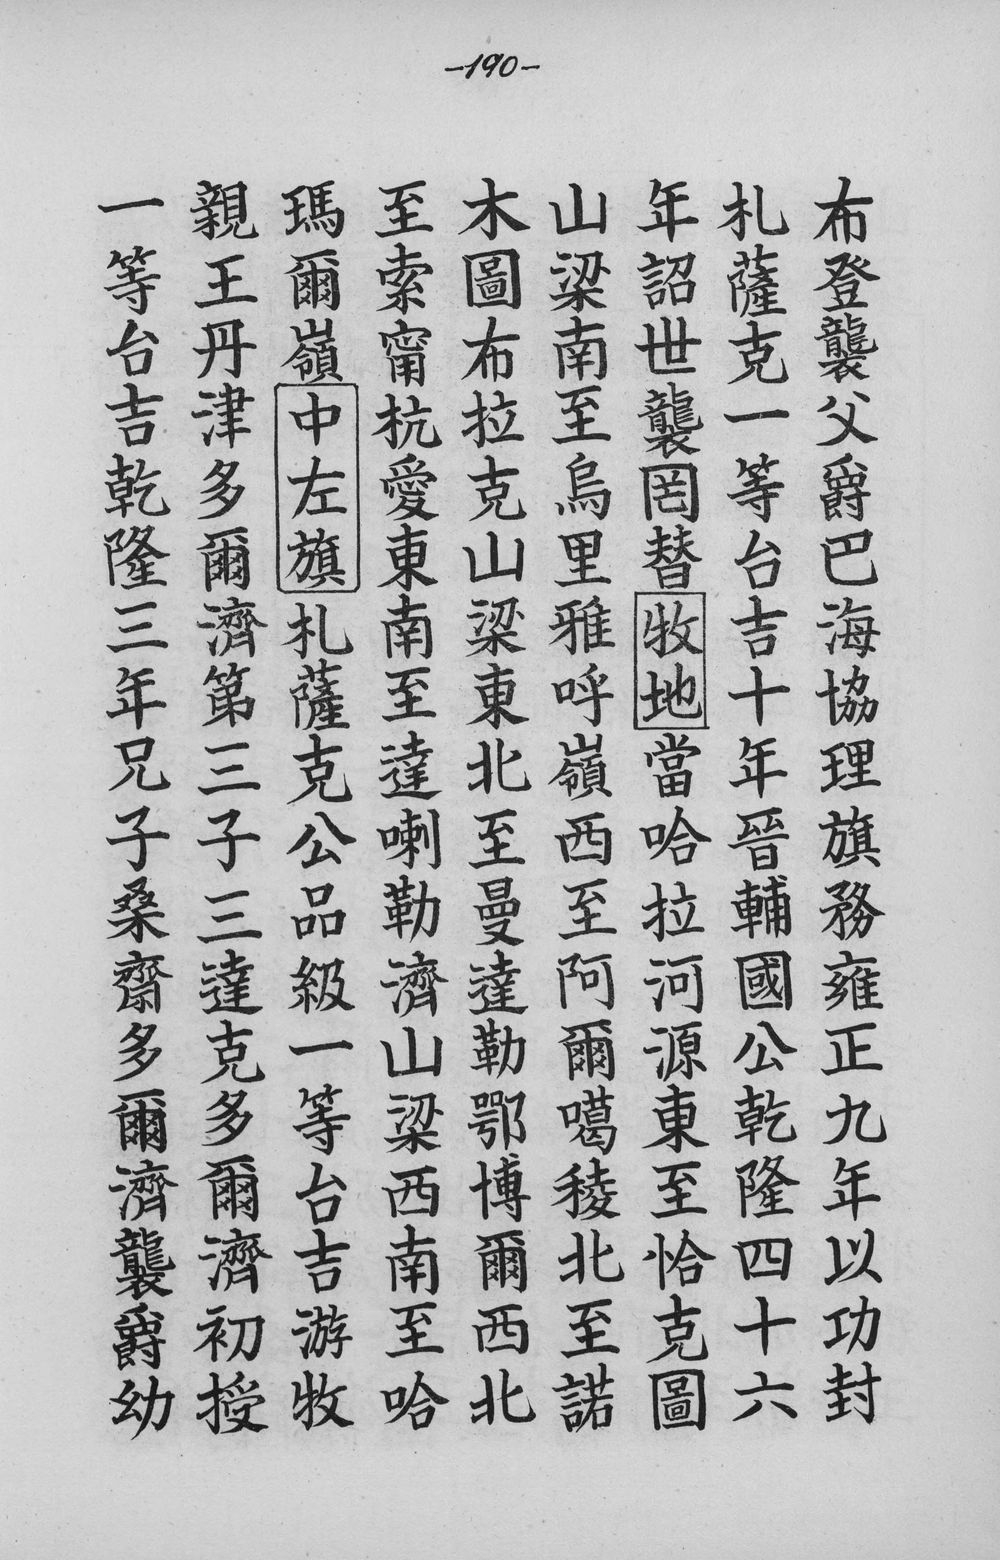 -190-
布登襲父爵巴海協理旗務雍正九年以功封
札薩克一等台吉十年晉輔國公乾隆四十六
年詔世襲罔替牧地當哈拉河源東至恰克圖
山梁南至烏里雅呼嶺西至阿爾噶稜北至諾
木圖布拉克山梁東北至曼達勒鄂博爾西北
至索甯杭愛東南至達喇勒濟山梁西南至哈
瑪爾嶺中左旗札薩克公品級一等台吉游牧
親王丹津多爾濟第三子三達克多爾濟初授
一等台吉乾隆三年兄子桑齋多爾濟襲爵幼